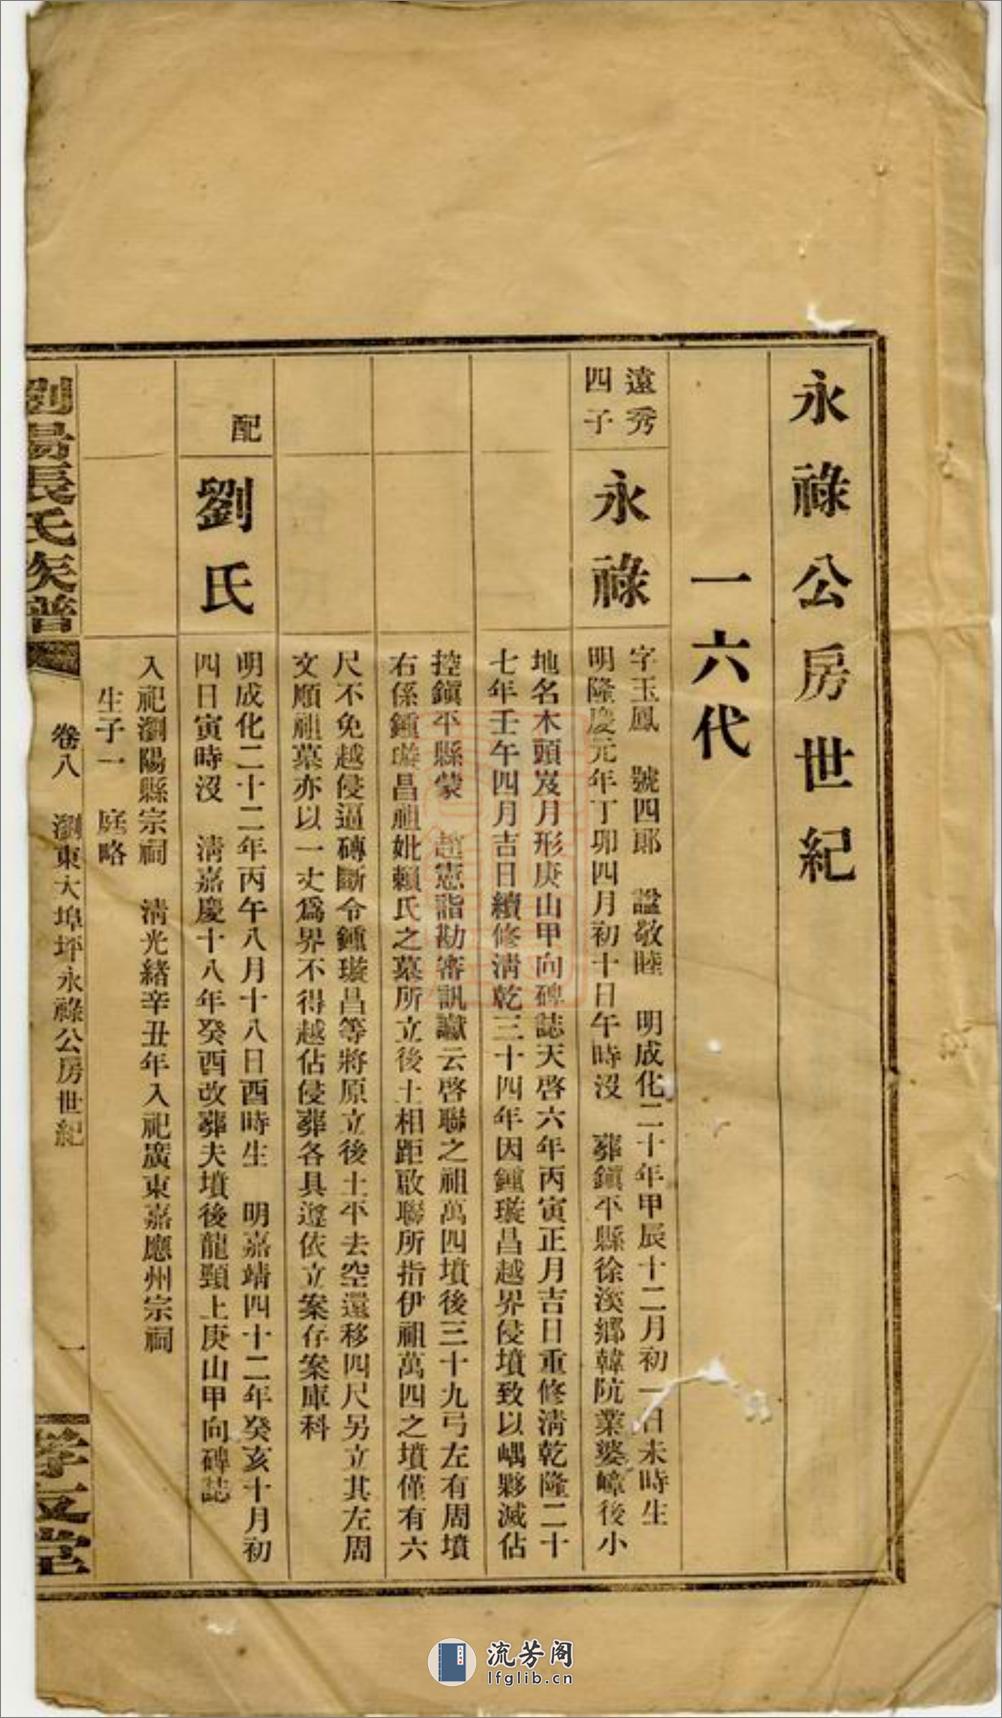 永祿公房世紀
一六代
遠秀
四子
永祿
字玉鳳　號四郎　諡敬睦　明成化二十年甲辰十二月初一日未時生
明隆慶元年丁卯四月初十日午時沒　葬鎮平縣徐淡鄉韓阬業婆嶂後小
地名木頭岌月形庚山甲向碑誌天啓六年丙寅正月吉日重修清乾隆二十
七年壬午四月吉日續修清乾三十四年因鍾璇昌越界侵墳致以嵎夥滅佔
控鎮平縣蒙　趙憲詣勘審訊讞云啓聯之祖萬四墳後三十九弓左有周墳
右係鍾璇昌祖妣賴氏之墓所立後土相距啟聯所指伊祖萬四之墳僅有六
尺不免越侵逼磚斷令鍾璇昌等將原立後土平去空還移四尺另立其左周
文順祖墓亦以一丈爲界不得越佔侵葬各具遵依立案存案庫科
配
劉氏
明成化二十二年丙午八月十八日酉時生　明嘉靖四十二年癸亥十月初
四日寅時沒　清嘉慶十八年癸酉改葬夫墳後龍頸上庚山甲向碑誌
入祀瀏陽縣宗祠　清光緒辛丑年入祀廣東嘉應州宗祠
生子一　庭略
瀏陽張氏族譜
卷八　瀏東大埠坪永祿公房世紀
一
孝友堂
流芳阁
lfglib.cn